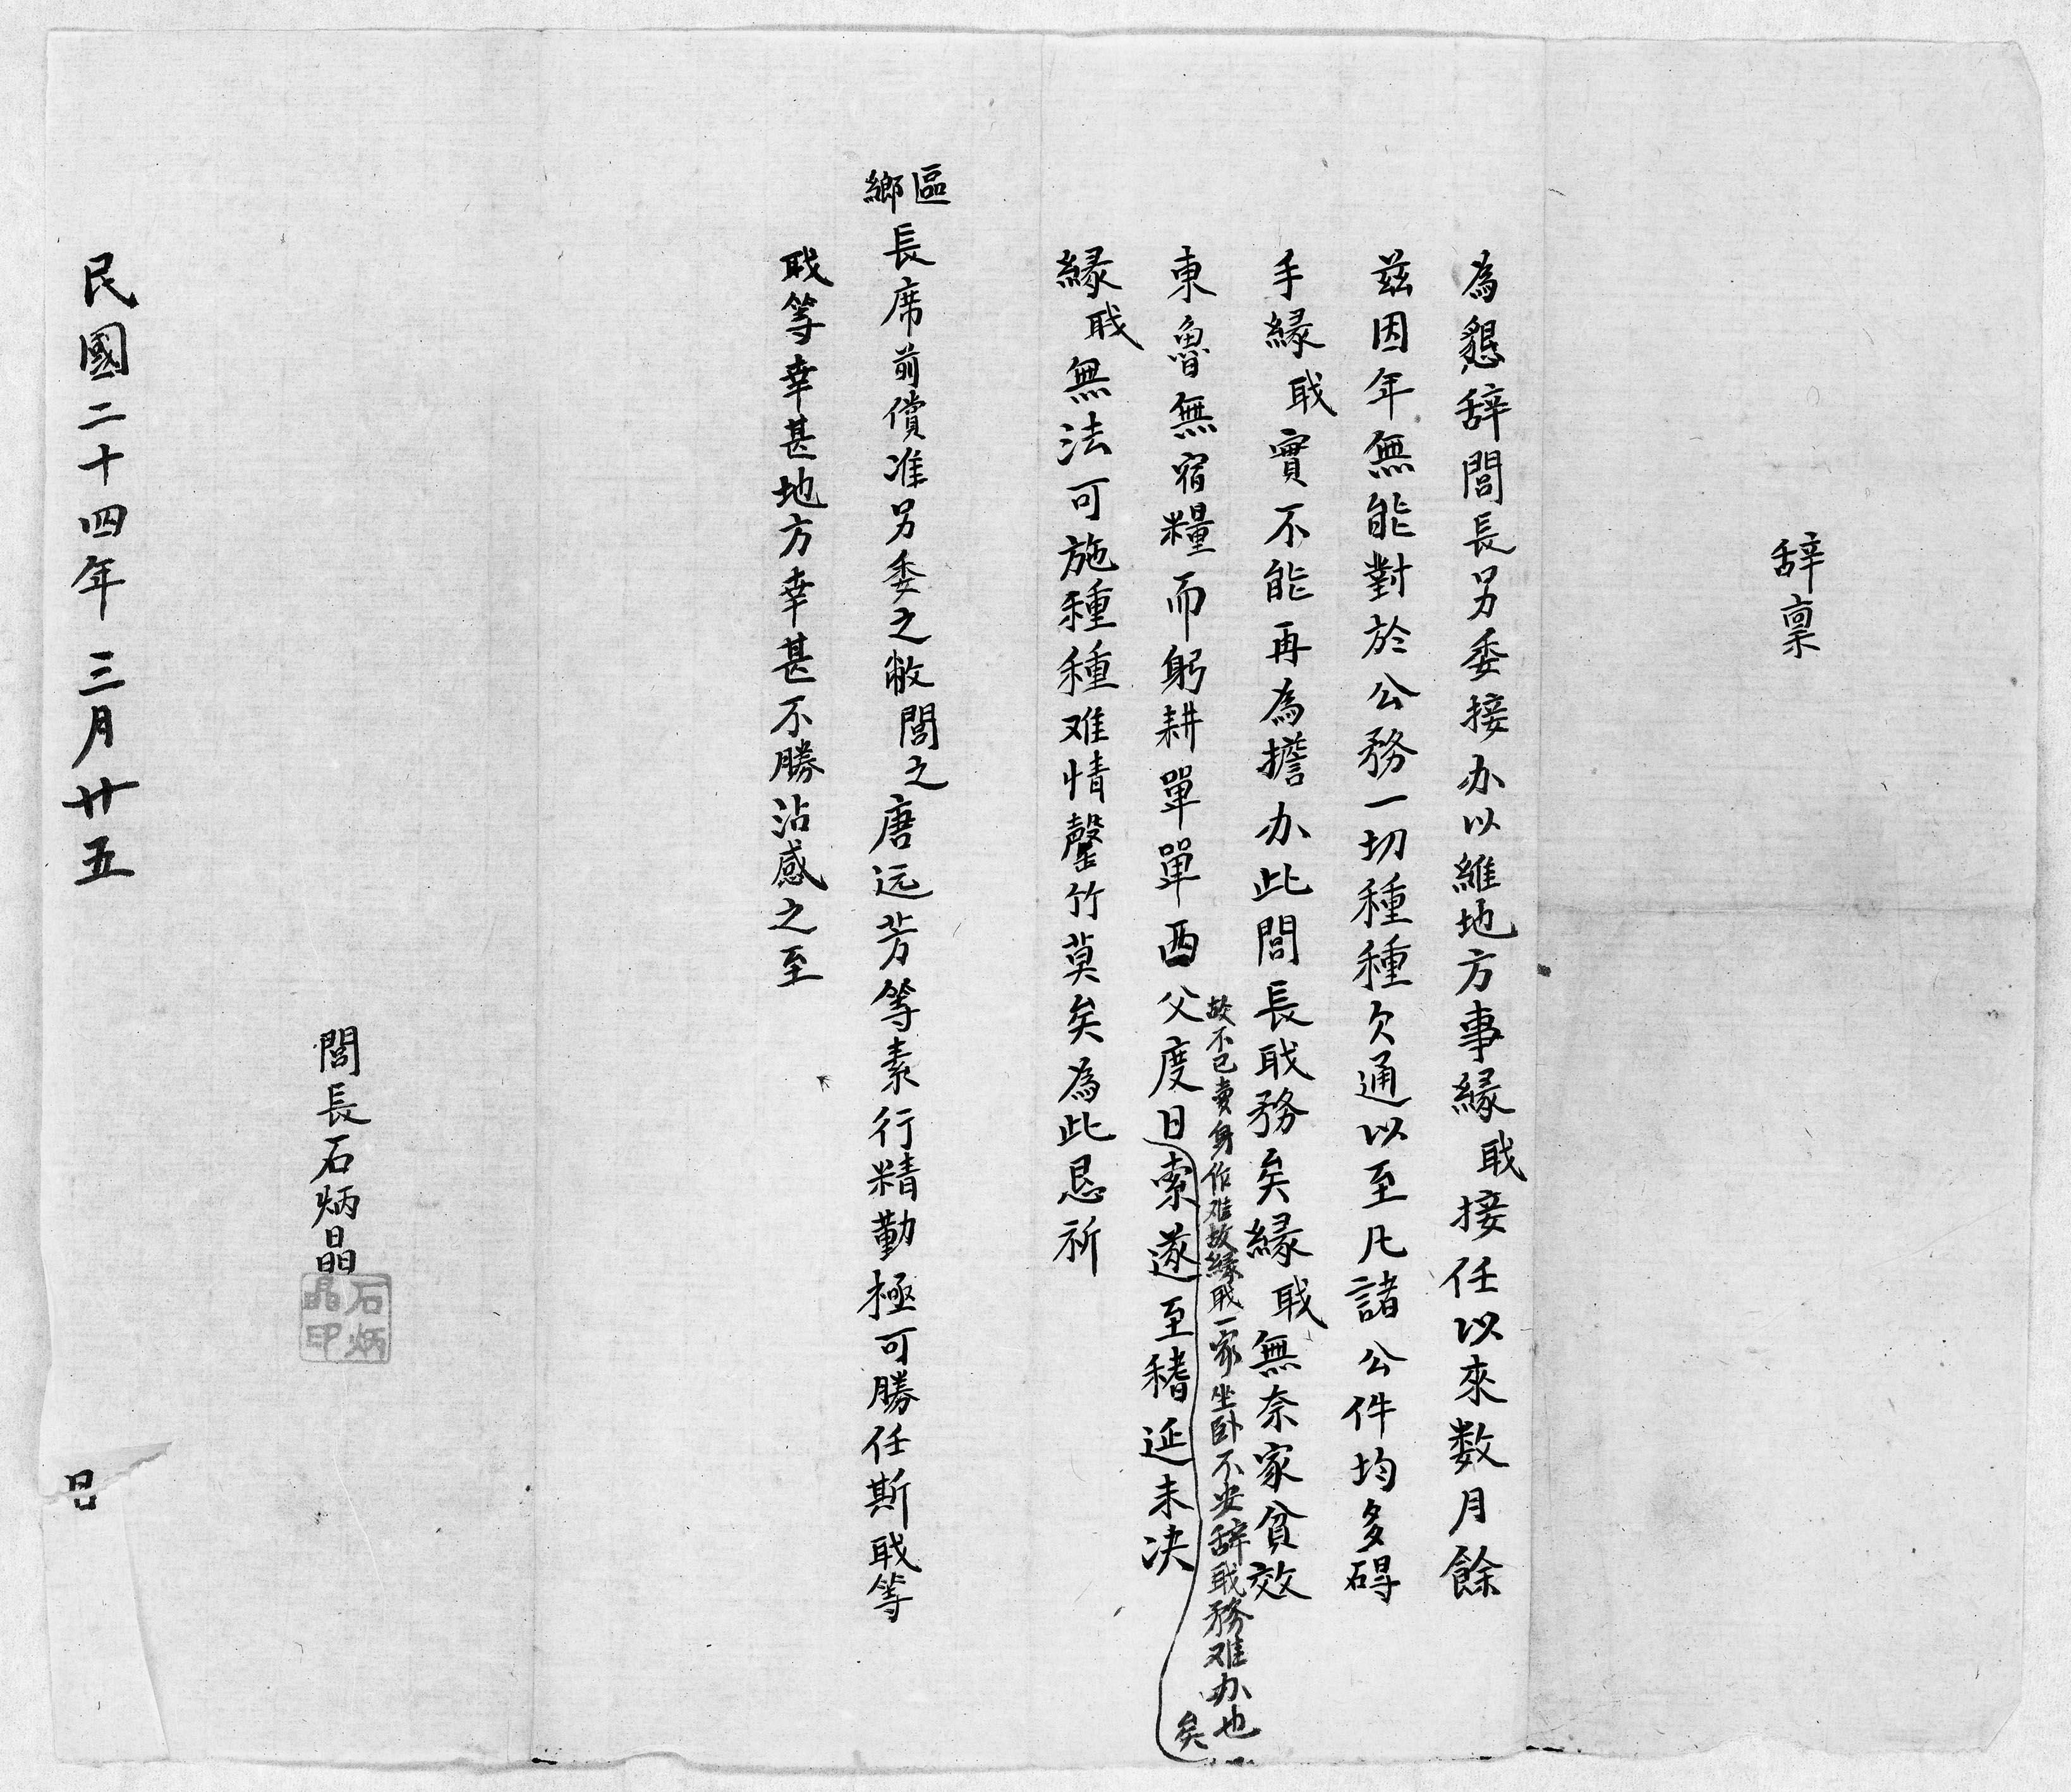 辞禀
為懇辞閭長另委接办以維地方事縁戢接任以來数月餘
兹因年無能對於公務一切種種欠通以至凡諸公件均多碍
手縁戢實不能再為擔办此閭長戢務矣縁戢無奈家貧效
故不已賣身作难故縁戢一家坐卧不安辞戢務难办也
矣
東魯無宿糧而躬耕單單西父度日索遂至稽延未决
縁戢無法可施種種难情罄竹莫矣為此恳祈
區鄉長席前償准另委之敝閭之唐远芳等素行精勤極可勝任斯戢等
戢等幸甚地方幸甚不勝沾感之至
閭長石炳晶
石炳晶印
民國二十四年三月廿五日